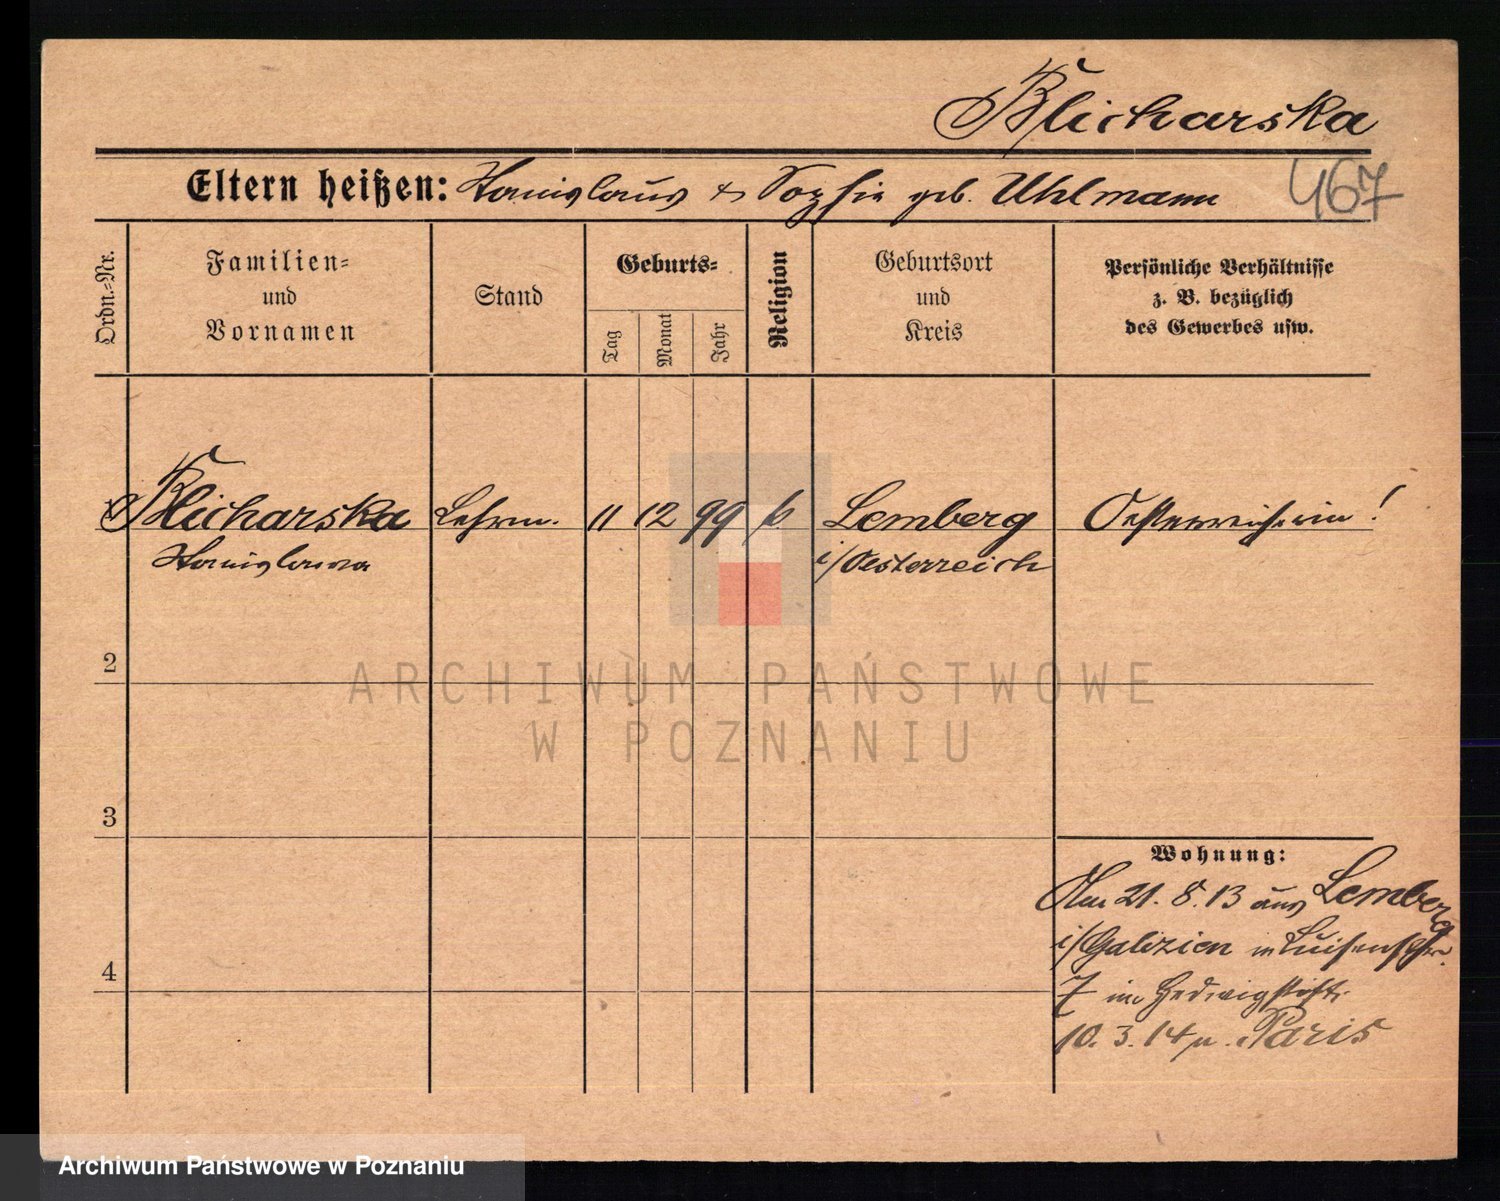 Blicharska
Eltern heißen: Stanislaus & Sophie geb. Uhlmann
467
Ordn.-Nr.
Familien-
und
Vornamen
Stand
Geburts-
Tag
Monat
Jahr
Religion
Geburtsort
und
Kreis
Persönliche Verhältnisse
z. B. bezüglich
des Gewerbes usw.
1 Blicharska Lehrin. 11 12 99 k Lemberg Oesterreicherin!
Stanislawa i/Oesterreich
2
3
4
Wohnung:
Am 21. 8. 13 aus Lemberg
i/Galizien in Luisenstr.
7 im Hedwigstift.
10. 3. 14 n. Paris
ARCHIWUM PAŃSTWOWE
W POZNANIU
Archiwum Państwowe w Poznaniu